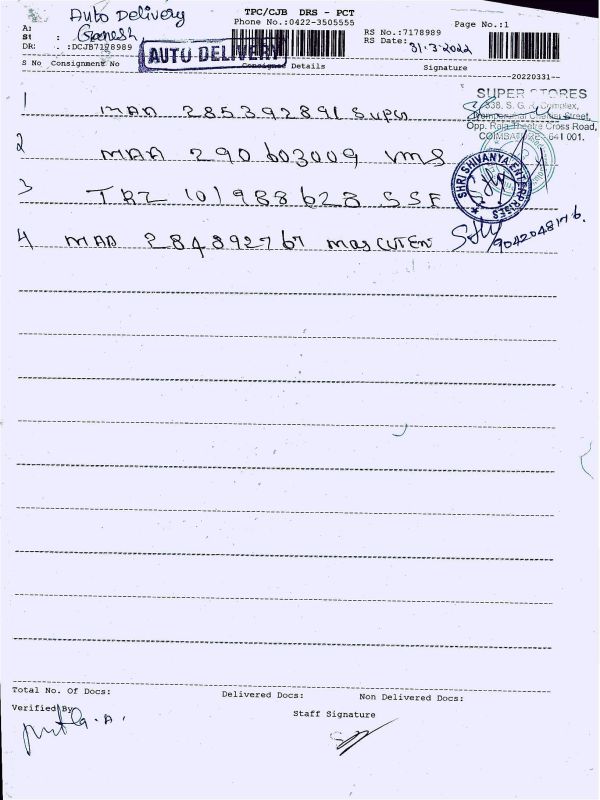 Auto Delivery
TPC/CJB DRS - PCT
Phone No.:0422-3505555
RS No.:7178989
Page No.:1
A:
St : Ganesh
RS Date: 31-3-2022
DR: :DCJB7178989
AUTO DELIVERY
S No Consignment No Consignee Details Signature
20220331
SUPER STORES
338, S. G. R. Complex,
Opp. Raja Theatre Cross Road,
COIMBATORE-641 001.
1 MAA 285392891 Super
2 MAA 290603009 VMS
SHRI SHIVANYA ENTERPRISES
3 TRZ 101988628 SSF
4 MAA 284892767
9042048176.
Total No. Of Docs: Delivered Docs: Non Delivered Docs:
Verified By
Staff Signature